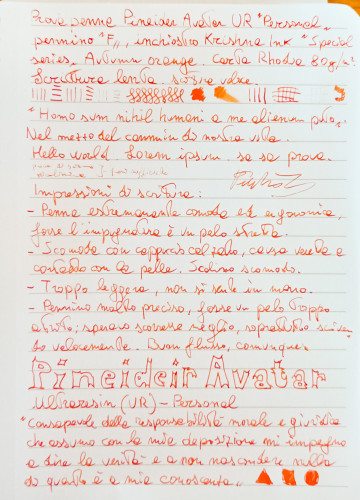 Prova penna Pineider Avatar UR "Personal„
pennino "F„, inchiostro Krishna Ink "Special
series„ Autumn orange. carta Rhodia 80 g/m²
Scrittura lenta. scrittura veloce.
"Homo sum nihil humani a me alienum puto„
Nel mezzo del cammin di nostra vita.
Hello world. Lorem ipsum. sa sa prova.
Impressioni di scrittura:
- Penna estremamente comoda ed ergonomica,
forse l'impugnatura è un pelo stretta.
- Scomoda con cappuccio calzato, causa
contatto con la pelle. Scalino scomodo.
- Troppo leggera, non si sente in mano.
- Pennino molto preciso, forse un pelo troppo
; speravo scorresse meglio, soprattutto
velocemente. Buon flusso, comunque
Pineideir Avatar
Ultraresin (UR) - Personal
"consapevole della responsabilità morale e giuridica
che assumo con la mia deposizione mi impegno
a dire la verità e a non nascondere nulla
di quanto è a mia conoscenza„